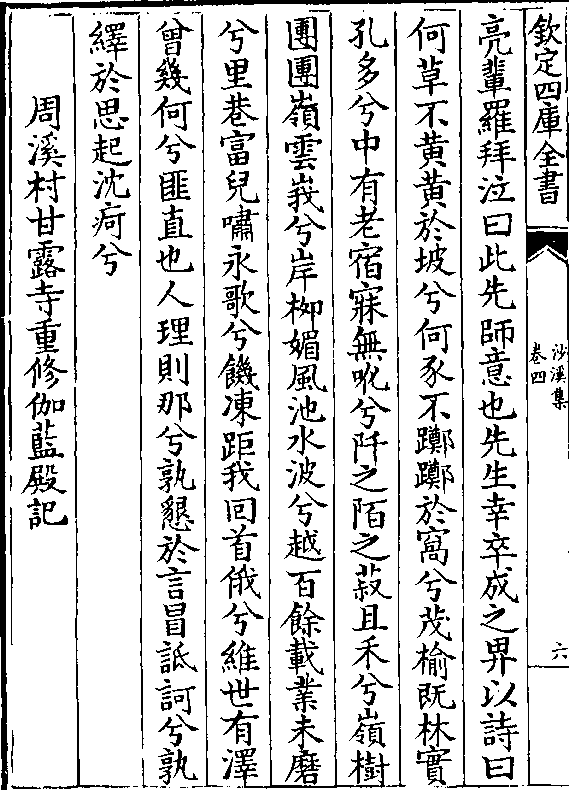 欽定四庫全書
沙溪集
卷四
六
亮輩羅拜泣曰此先師意也先生幸卒成之畀以詩曰
何草不黄黄於坡兮何豕不躑躑於窩兮茂榆既林實
孔多兮中有老宿寐無吪兮阡之陌之菽且禾兮嶺樹
團團嶺雲峩兮岸栁媚風池水波兮越百餘載業未磨
兮里巷富兒嘯永歌兮饑凍距我回首俄兮維世有澤
曾幾何兮匪直也人理則那兮孰懇於言冒詆訶兮孰
繹於思起沈疴兮
周溪村甘露寺重修伽藍殿記